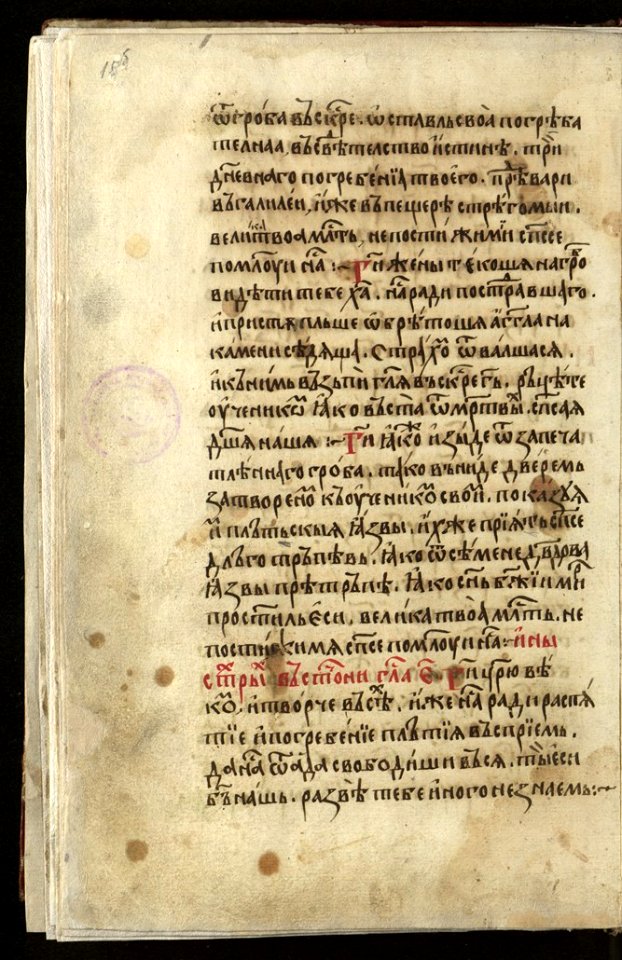 ѿгро́ба въскр҃се. ѡставль своѧ̀ погрѣба
телнаа, въсвѣ́телство и́стинѣ. три
дне́внаго погребе́нїа твоего̀. прѣ́вари
въгалиле́и, и́же въпещерѣ стрѣго́мыи.
ве́лїа твоа млⷭ҇ть, непости́жимїи сп҃се
помлоуи на́с :~ Гⷭ҇и жены̀ текошѧ нагро́б
видѣти тебе ха҃. на́с ради пострⷣавшаго.
и пристѫпльше ѡбрѣтошѧ а҆гг҃ла на
камени сѣдѧща. страхо́м ѿвалшасѧ.
и къ нимь възъпи гл҃ѧ въскр҃се гь҃. рьцѣте
оученикѡ́м ꙗко въста ѿмрⸯтвых. сп҃саѧ
дш҃ѧ нашѧ :~ Гⷭ҇и ꙗ́коже изы́де ѿ запеча
тлѣннаго гро́ба. та́ко въни́де две́ремь
затворено́м къоученико́м свои́м. показꙋѧ
и́м плъ́тьскыѧ ꙗ́звы. и́хже прїѧть сп҃се
длъго тръпѣвь. ꙗко ѿ сѣмене дв҃дова
ꙗ́звы прѣтръпѣ. ꙗко сн҃ь бж҃їи миⷬ
прости́ль еси̂. ве́лика твоа̀ млⷭ҇ть. не
пости́жимѧ сп҃се помлоуи на́с :~ и́ны
стⷯры въсто́чни гла́с е҃. Гⷭ҇и цр҃ю вѣ́
ко́м, и творче въсѣ́м. и́же на́с ради распѧ
тїе и погребе́нїе плътїѧ въспрїе́мь.
да на́с ѿада свободи́ши въсѧ. ты̀ еси
бъ҃ нашь. развѣ̀ тебе и́ного не знаемь :~